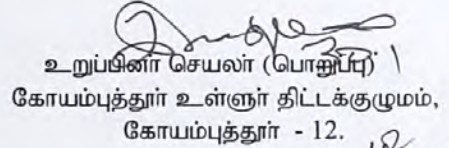 உறுப்பினர் செயலர் (பொறுப்பு)
கோயம்புத்தூர் உள்ளூர் திட்டக்குழுமம்,
கோயம்புத்தூர் - 12.